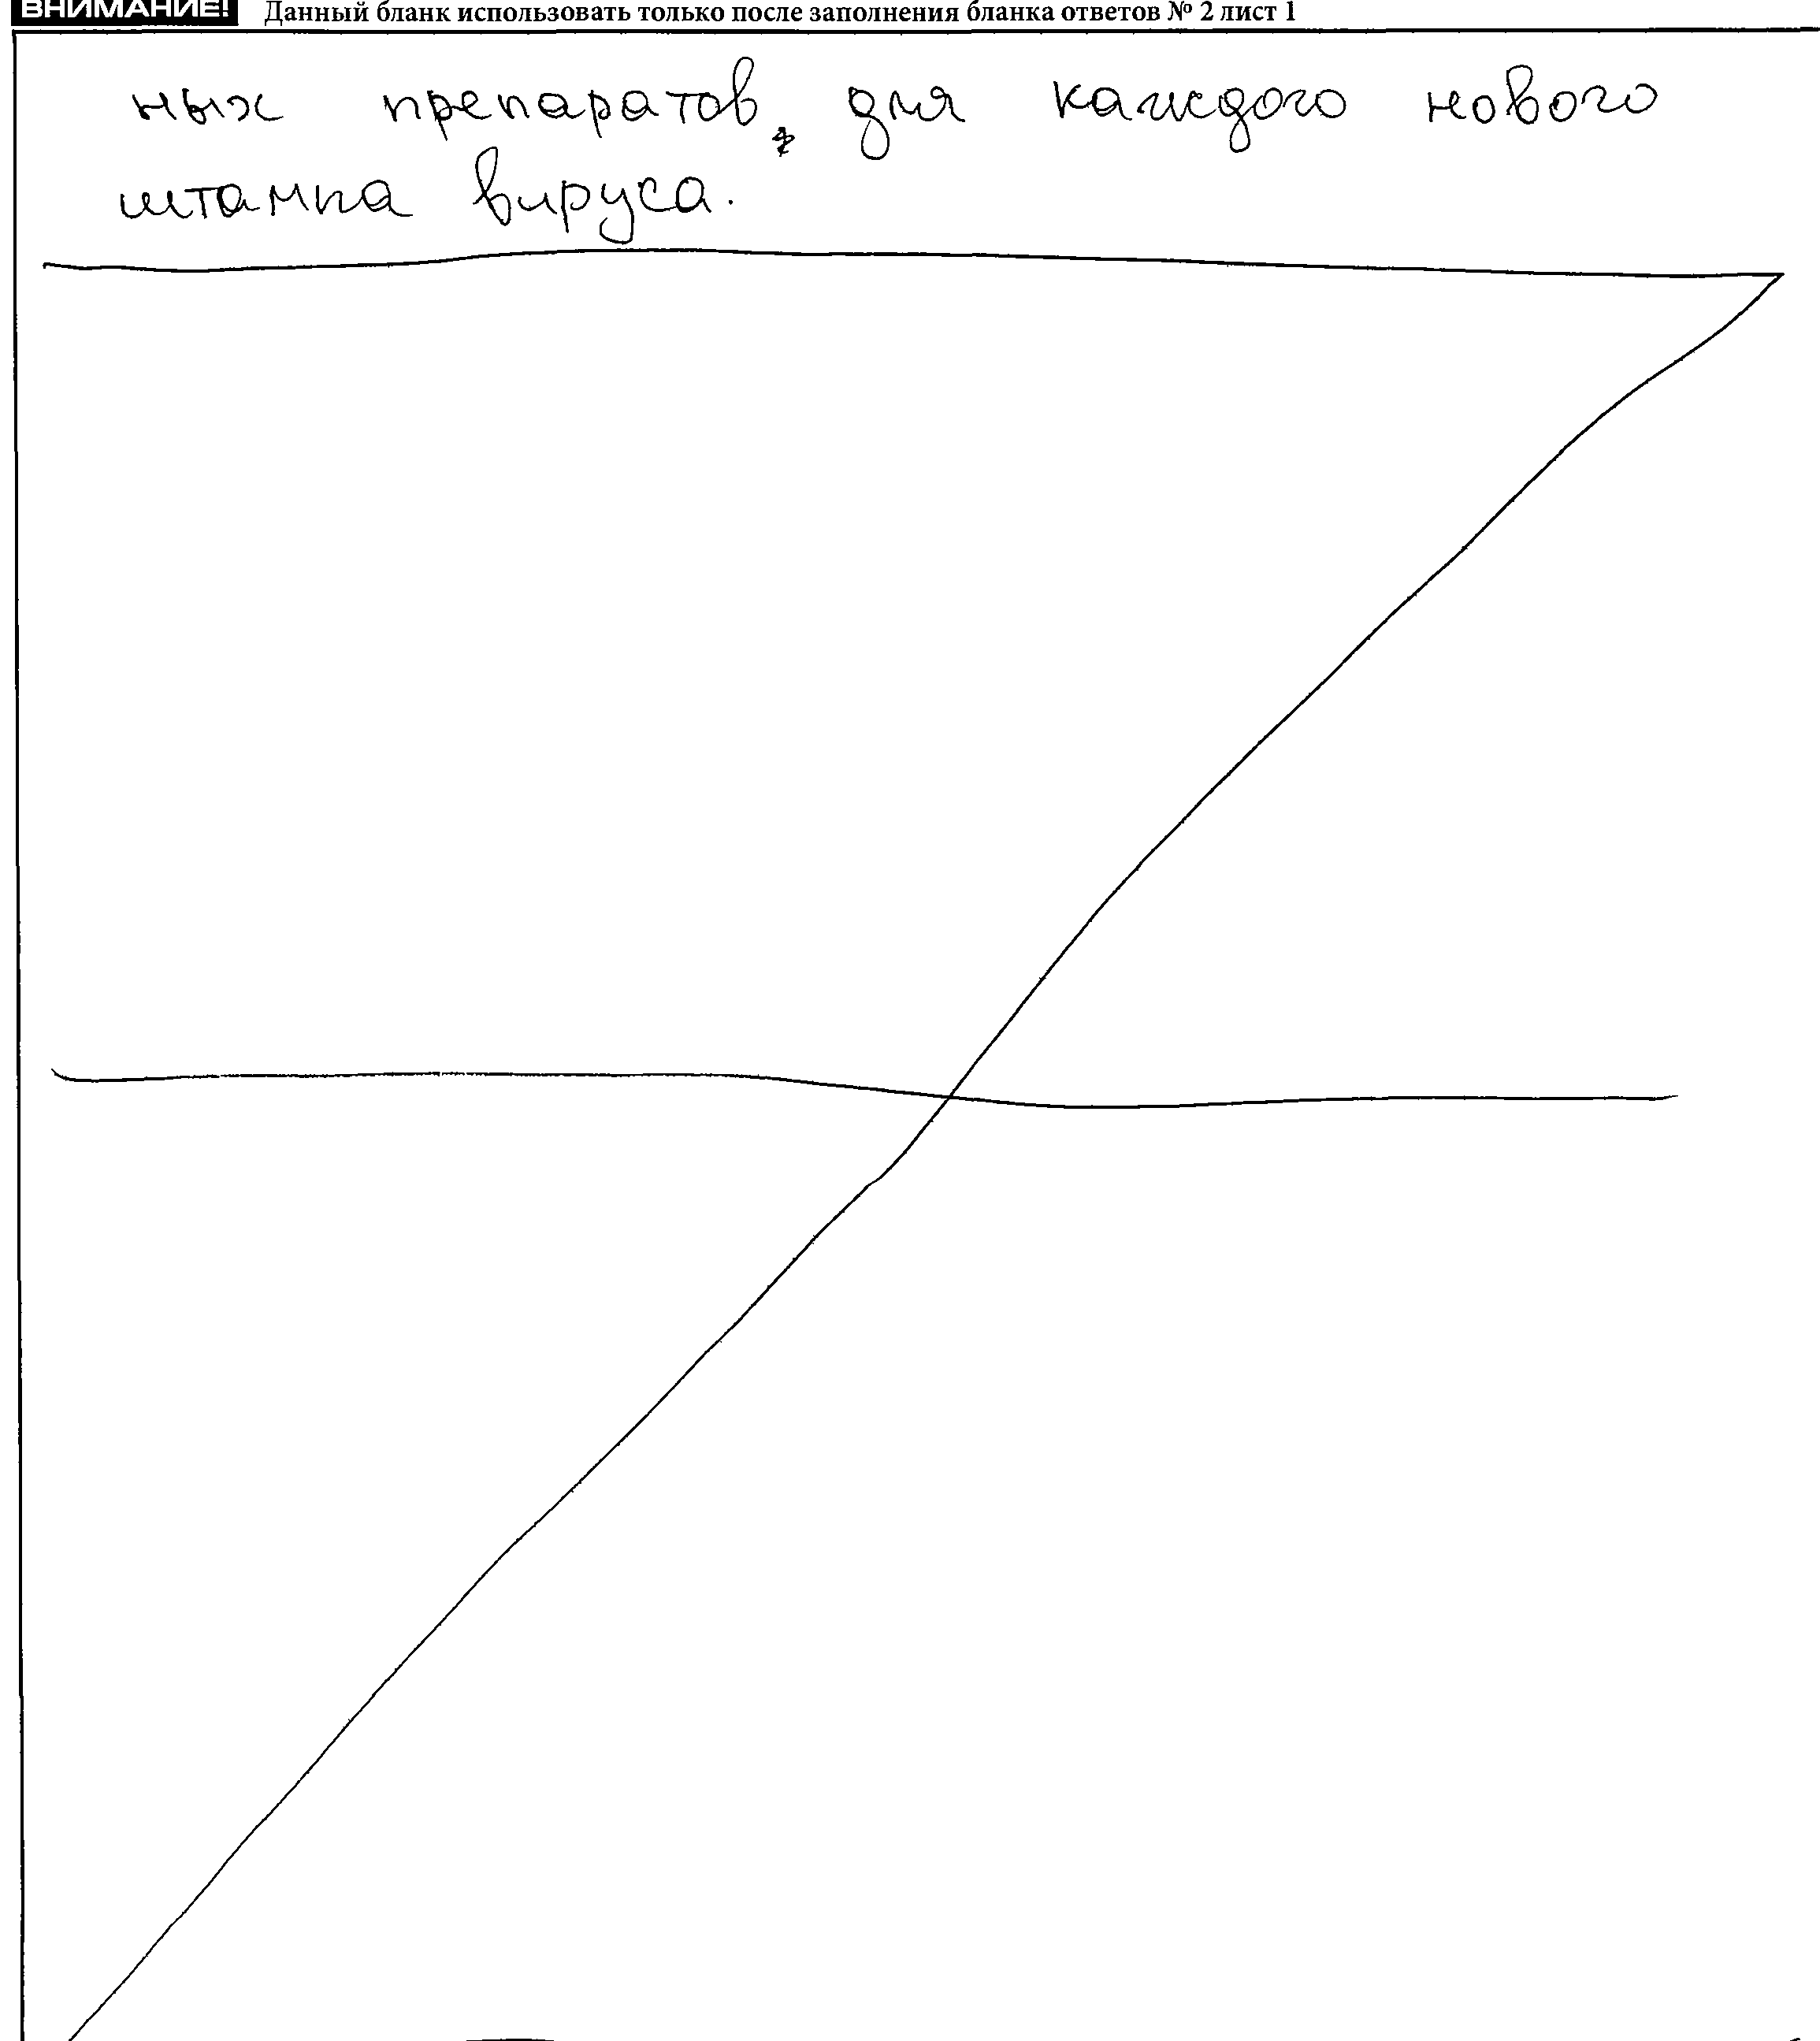 ВНИМАНИЕ! Данный бланк использовать только после заполнения бланка ответов № 2 лист 1
ных препаратов, для каждого нового
штампа вируса.